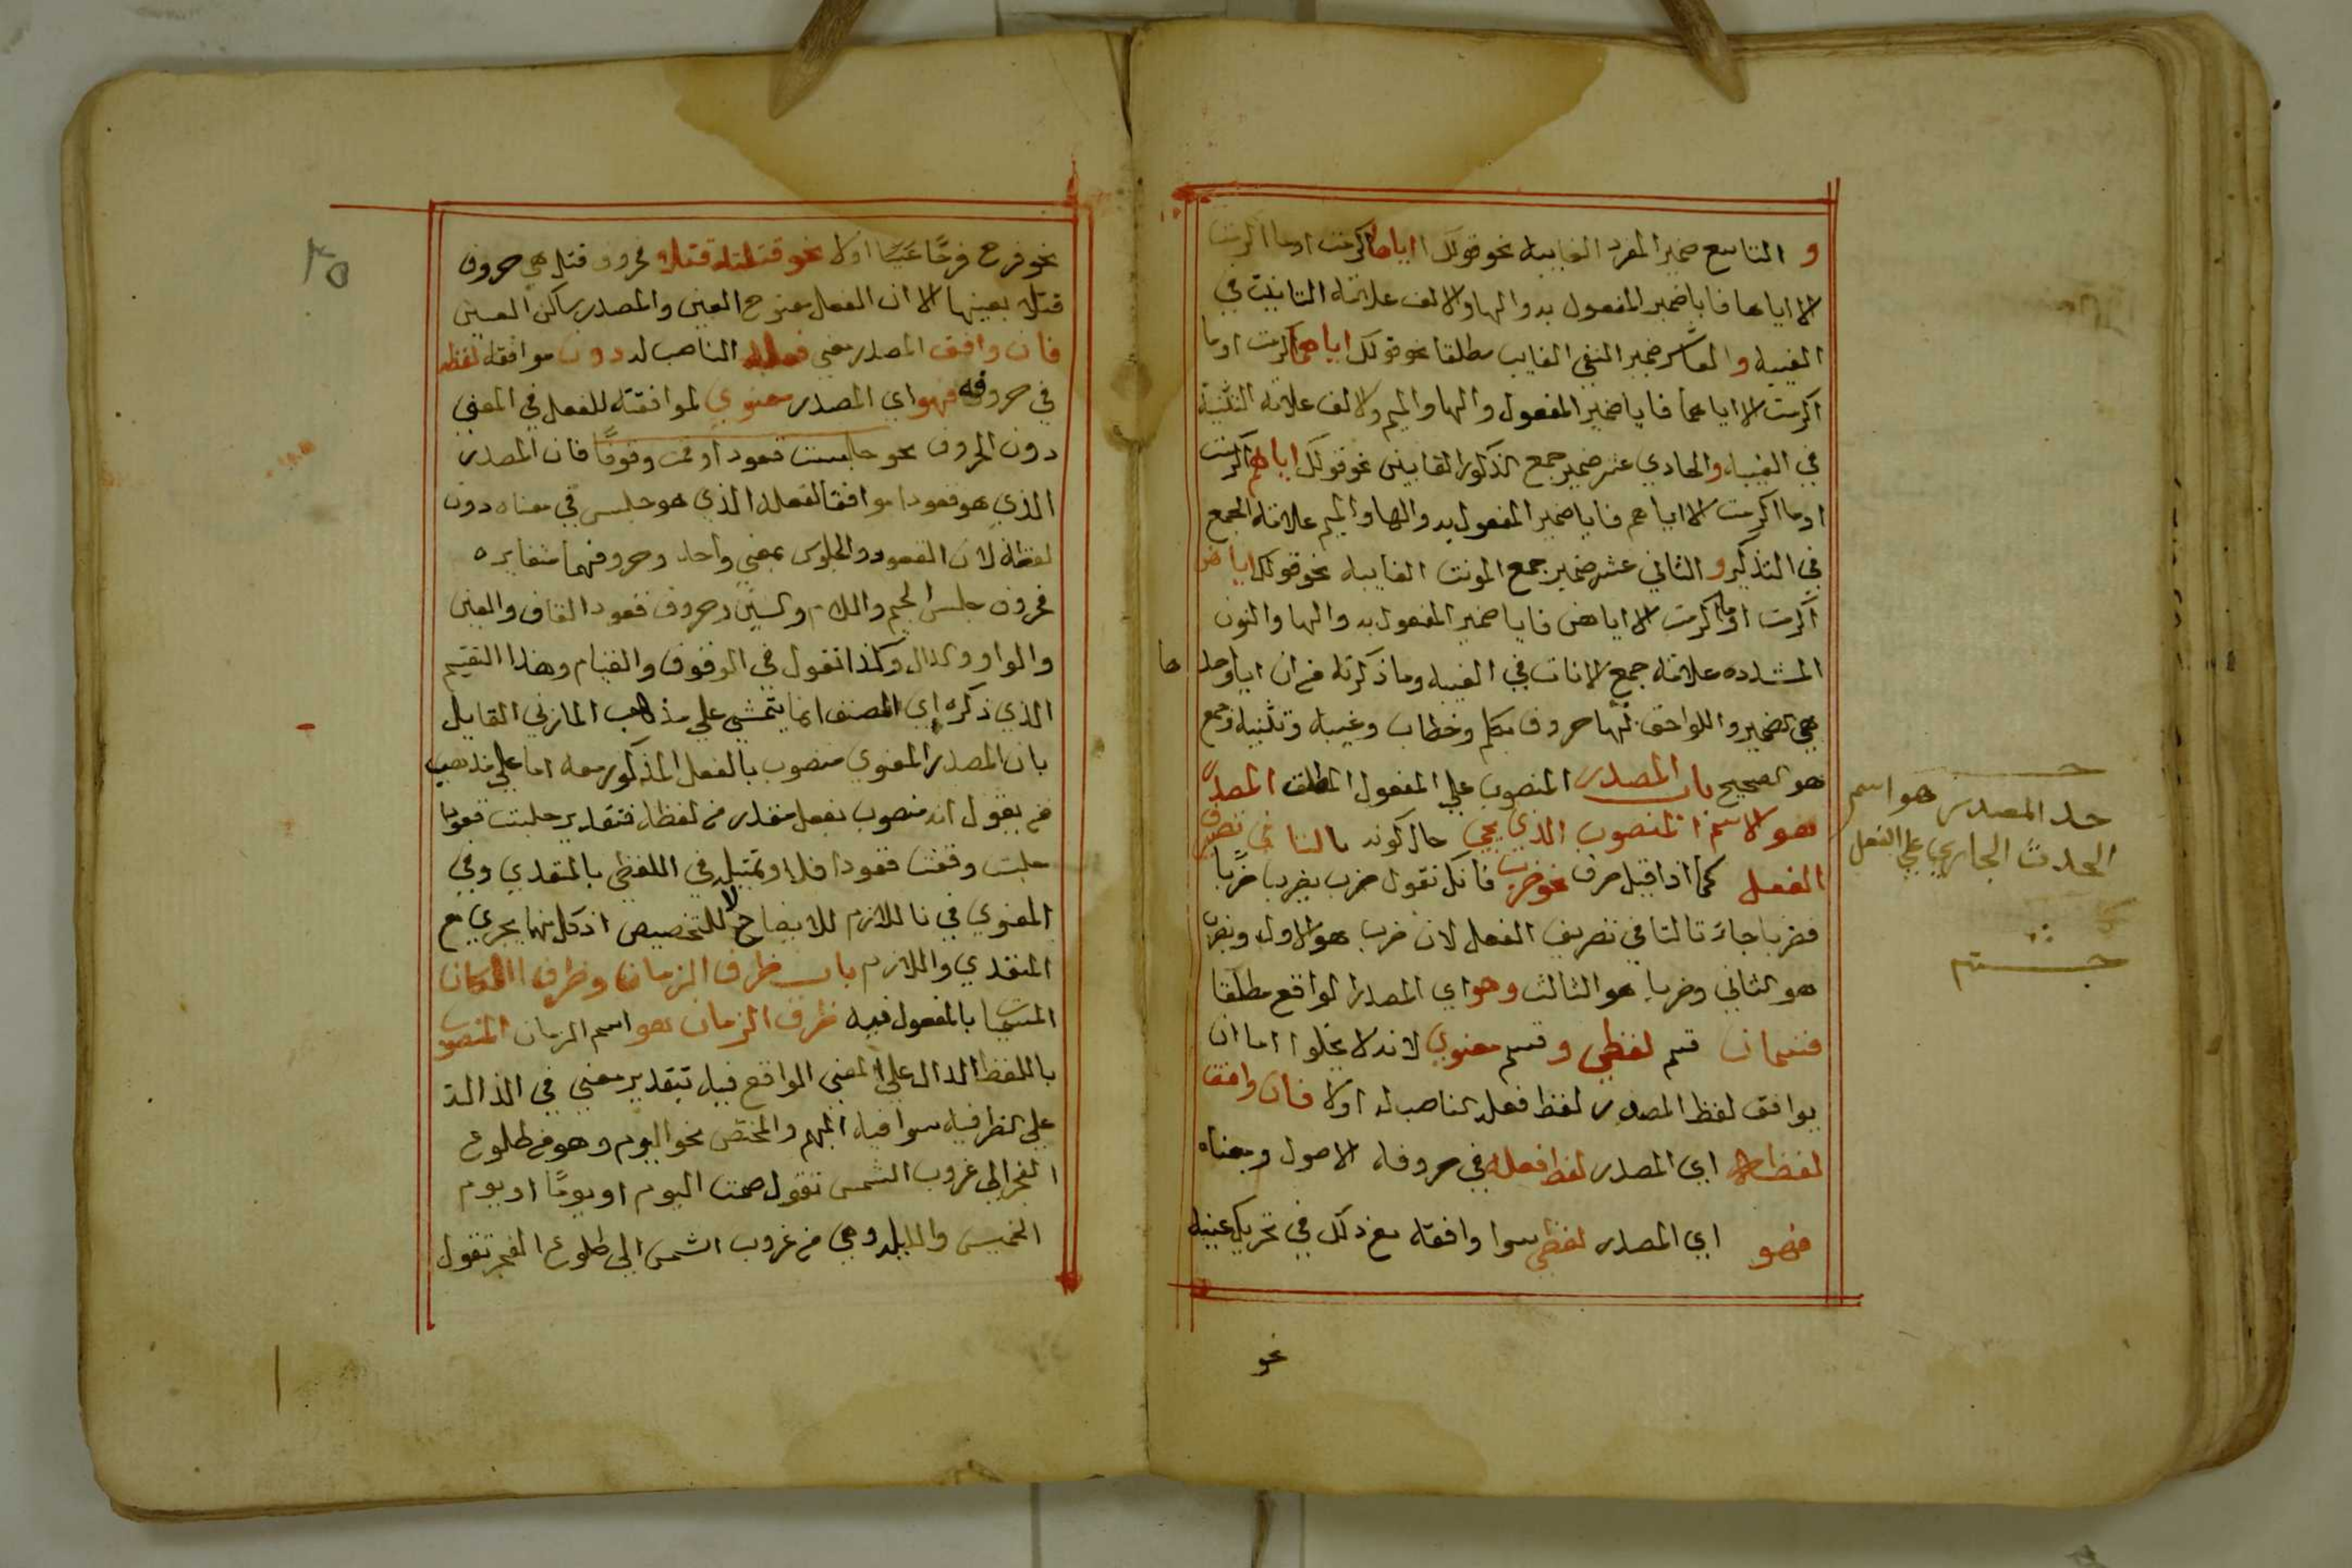 و التاسع ضمير المفرد الغايبه نحو قولك اياها اكرمت او ما اكرمت
الا اياها فايا ضمير المفعول به والها والالف علامة التانيث في
الغيبه والعاشر ضمير المثني الغايب مطلقا نحو قولك اياهما اكرمت او ما
اكرمت الا اياهما فايا ضمير المفعول والها والميم والالف علامة التثنية
في الغيبه والحادي عشر ضمير جمع الذكور الغايبين نحو قولك اياهم اكرمت
او ما اكرمت الا اياهم فايا ضمير المفعول به والها والميم علامة الجمع
في التذكير و الثاني عشر ضمير جمع المونث الغايبه نحو قولك اياهن
اكرمت او ما اكرمت الا اياهن فايا ضمير المفعول به والها والنون
المشدده علامة جمع الاناث في الغيبه وما ذكرته من ان ايا وحدها
هي الضمير واللواحق لها حروف تكلم وخطاب وغيبه وتثنيه وجمع
هو الصحيح باب المصدر المنصوب علي المفعول المطلق المصدر
هو الاسم المنصوب الذي يجي حال كونه ثالثا في تصريف
الفعل كما اذا قيل صرف نحو ضرب فانك تقول ضرب يضرب ضربًا
فضربا جاء ثالثا في تصريف الفعل لان ضرب هو الاول ويضرب
هو الثاني وضربا هو الثالث وهو اي المصدر الواقع مطلقا
قسمان قسم لفظي وقسم معنوي لانه لا يخلوا اما ان
يوافق لفظ المصدر لفظ فعله الناصب له اولا فان وافق
لفظه اي المصدر لفظ فعله في حروفه الاصول ومعناه
فهو اي المصدر لفظي سوا وافقه مع ذلك في تحريك عينه
نحو
حد المصدر هو اسم
الحدث الجاري علي الفعل
نحو فرح فرحًا او لا نحو قتلته قتلا فحروف قتل هي حروف
قتلا بعينها الا ان الفعل مفتوح العين والمصدر ساكن العين
فان وافق المصدر معني فعله الناصب له دون موافقة لفظه
في حروفه فهو اي المصدر معنوي لموافقته للفعل في المعني
دون الحروف نحو جلست قعودا وقمت وقوفًا فان المصدر
الذي هو قعودا موافقا لفعله الذي هو جلس في معناه دون
لفظه لان القعود والجلوس بمعني واحد وحروفهما متغايره
فحروف جلس الجيم واللام والسين وحروف قعود القاف والعين
والواو والدال وكذا تقول في الوقوف والقيام وهذا التقيم
الذي ذكره اي المصنف انما يتمشي علي مذهب المازني القايل
بان المصدر المعنوي منصوب بالفعل المذكور معه اما علي مذهب
من يقول انه منصوب بفعل مقدر من لفظه فتقدير جلست قعودا
جلست وقعدت قعودا فلا وتمثيله في اللفظي بالمتعدي وفي
المعنوي في نا اللازم للايضاح لا للتخصيص اذ كل منهما يجري مع
المتعدي واللازم باب ظرف الزمان وظرف المكان
المسميا بالمفعول فيه ظرف الزمان هو اسم الزمان المنصوب
باللفظ الدال علي المعني الواقع فيه بتقدير معني في الدالة
علي الظرفية سوا فيه المبهم والمختص نحو اليوم وهو من طلوع
الفجر الي غروب الشمس تقول صمت اليوم او يومًا او يوم
الخميس والليله وهي من غروب الشمس الي طلوع الفجر تقول